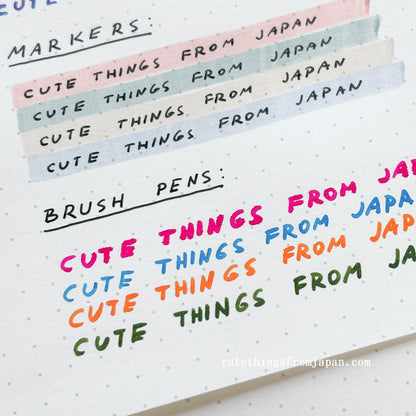 CUTE
MARKERS:
CUTE THINGS FROM JAPAN
CUTE THINGS FROM JAPAN
CUTE THINGS FROM JAPAN
CUTE THINGS FROM JAPAN
BRUSH PENS:
CUTE THINGS FROM JAP
CUTE THINGS FROM JAPA
CUTE THINGS FROM JAP
CUTE THINGS FROM JA
cutethingsfromjapan.com